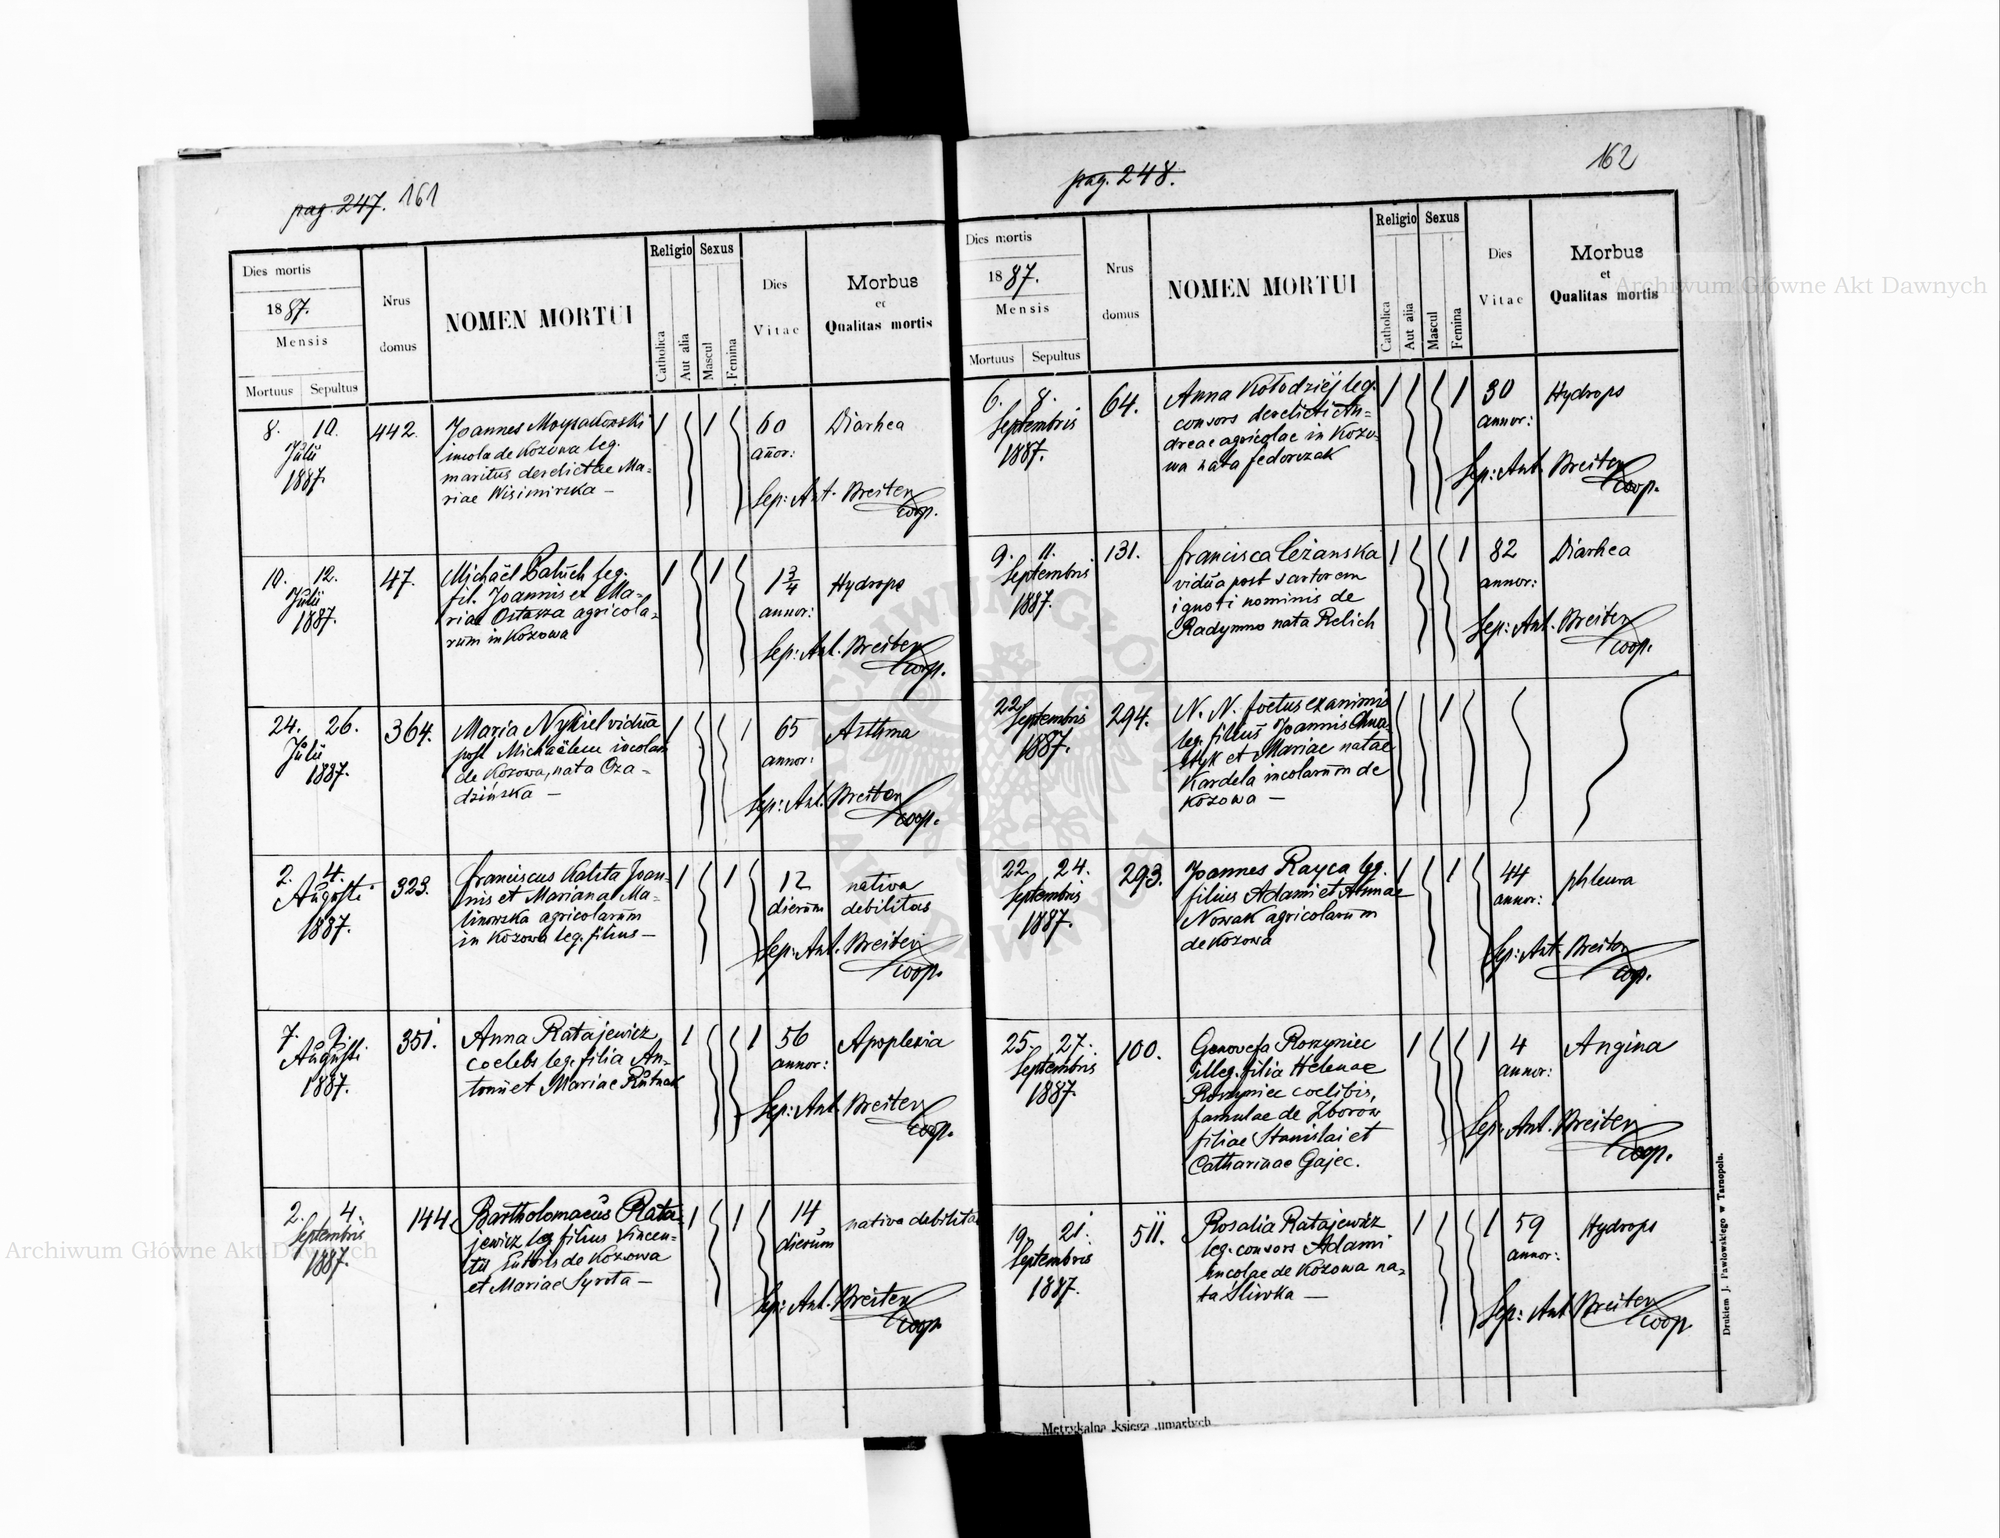 pag. 247. 161
Dies mortis
1887.
Mensis
Mortuus Sepultus
Nrus
domus
NOMEN MORTUI
Religio
Catholica
Aut alia
Sexus
Mascul
Femina
Dies
Vitae
Morbus
et
Qualitas mortis
8. 10.
Julii
1887.
442.
Joannes
incola de Kozowa leg.
maritus derelictae Ma-
riae Wisimirska —
60
anor:
Diarhea
Sep: Ant. Breiter
Coop.
10. 12.
Julii
1887.
47.
Michaël Baluch leg.
fil. Joannis et Ma-
riae Ostasza agricola-
rum in Kozowa
1 3/4
annor:
Hydrops
Sep: Ant. Breiter
Coop.
24. 26.
Julii
1887.
364.
Maria Nykiel vidua
post Michaëlem incolam
de Kozowa, nata Oza-
dzińska —
65
annor:
Asthma
Sep: Ant. Breiter
Coop.
2. 4.
Augusti
1887.
323.
Franciscus Kaleta Joan-
nis et Mariana Ma-
linowska agricolarum
in Kozowa leg. filius —
12
dierum
nativa
debilitas
Sep: Ant. Breiter
Coop.
7. 9.
Augusti
1887.
351.
Anna Ratajewicz
coelebs leg. filia An-
tonii et Mariae Rutnak
56
annor:
Apoplexia
Sep: Ant. Breiter
Coop.
2. 4.
Septembris
1887.
144.
Bartholomaeus Rata-
jewicz leg filius Vincen-
tii de Kozowa
et Mariae Syrota —
14
dierum
nativa debilitas
Sep: Ant. Breiter
Coop.
pag. 248.
162
Dies mortis
1887.
Mensis
Mortuus Sepultus
Nrus
domus
NOMEN MORTUI
Religio
Catholica
Aut alia
Sexus
Mascul
Femina
Dies
Vitae
Morbus
et
Qualitas mortis
6. 8.
Septembris
1887.
64.
Anna Kołodziej leg.
consors derelicti An-
dreae agricolae in Kozo-
wa nata Fedorczak
30
annor:
Hydrops
Sep: Ant. Breiter
Coop.
9. 11.
Septembris
1887.
131.
Francisca Leżanska
vidua post sartorem
ignoti nominis de
Radymno nata Relich
82
annor:
Diarhea
Sep: Ant. Breiter
Coop.
22
Septembris
1887.
294.
N. N. foetus exanimis
leg. filius Joannis
et Mariae natae
Kardela incolarum de
Kozowa —
22. 24.
Septembris
1887.
293.
Joannes Rayca leg.
filius Adami et Annae
Nowak agricolarum
de Kozowa
44
annor:
phleura
Sep: Ant. Breiter
Coop.
25. 27.
Septembris
1887.
100.
Genovefa Romyniec
illeg. filia Helenae
Romyniec coelibis,
famulae de Zborow
filiae Stanislai et
Catharinae Gajec.
4
annor:
Angina
Sep: Ant. Breiter
Coop.
19. 21.
Septembris
1887.
511.
Rosalia Ratajewicz
leg. consors Adami
incolae de Kozowa na-
ta Śliwka —
59
annor:
Hydrops
Sep: Ant Breiter
Coop
Drukiem J. Pawłowskiego w Tarnopolu.
Metrykalna księga umarłych
Archiwum Główne Akt Dawnych
Archiwum Główne Akt Dawnych
ARCHIWUM GŁÓWNE AKT DAWNYCH